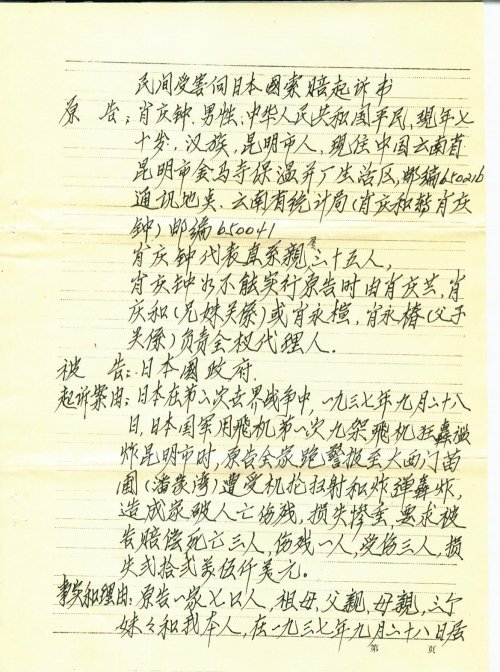 民间受害向日本國索赔起诉书
原 告：肖庆钟，男性，中华人民共和国平民，现年七
十岁，汉族，昆明市人，现住中国云南省
昆明市金马寺保温并厂生活区，邮编650216
通讯地点：云南省统计局（肖庆和转肖庆
钟）邮编650041
肖庆钟代表直系親属二十五人，
肖庆钟如不能实行原告时由肖庆芸，肖
庆和（兄妹关係）或肖永楦，肖永椿（父子
关係）负责全权代理人．
被 告：日本國政府．
起诉案由：日本在第二次世界战争中，一九三七年九月二十八
日，日本国军用飛机第一次九架飛机狂轟滥
炸昆明市时，原告全家跑警报至大西门苗
圃（潘家湾）遭受机抢扫射和炸弹轟炸，
造成家破人亡伤残，损失惨重，要求被
告赔偿死亡三人，伤残一人，受伤三人，损
失弍拾弍萬伍仟美元．
事实和理由：原告一家七口人，祖母，父親，母親，三个
妹々和我本人，在一九三七年九月二十八日居
第 页